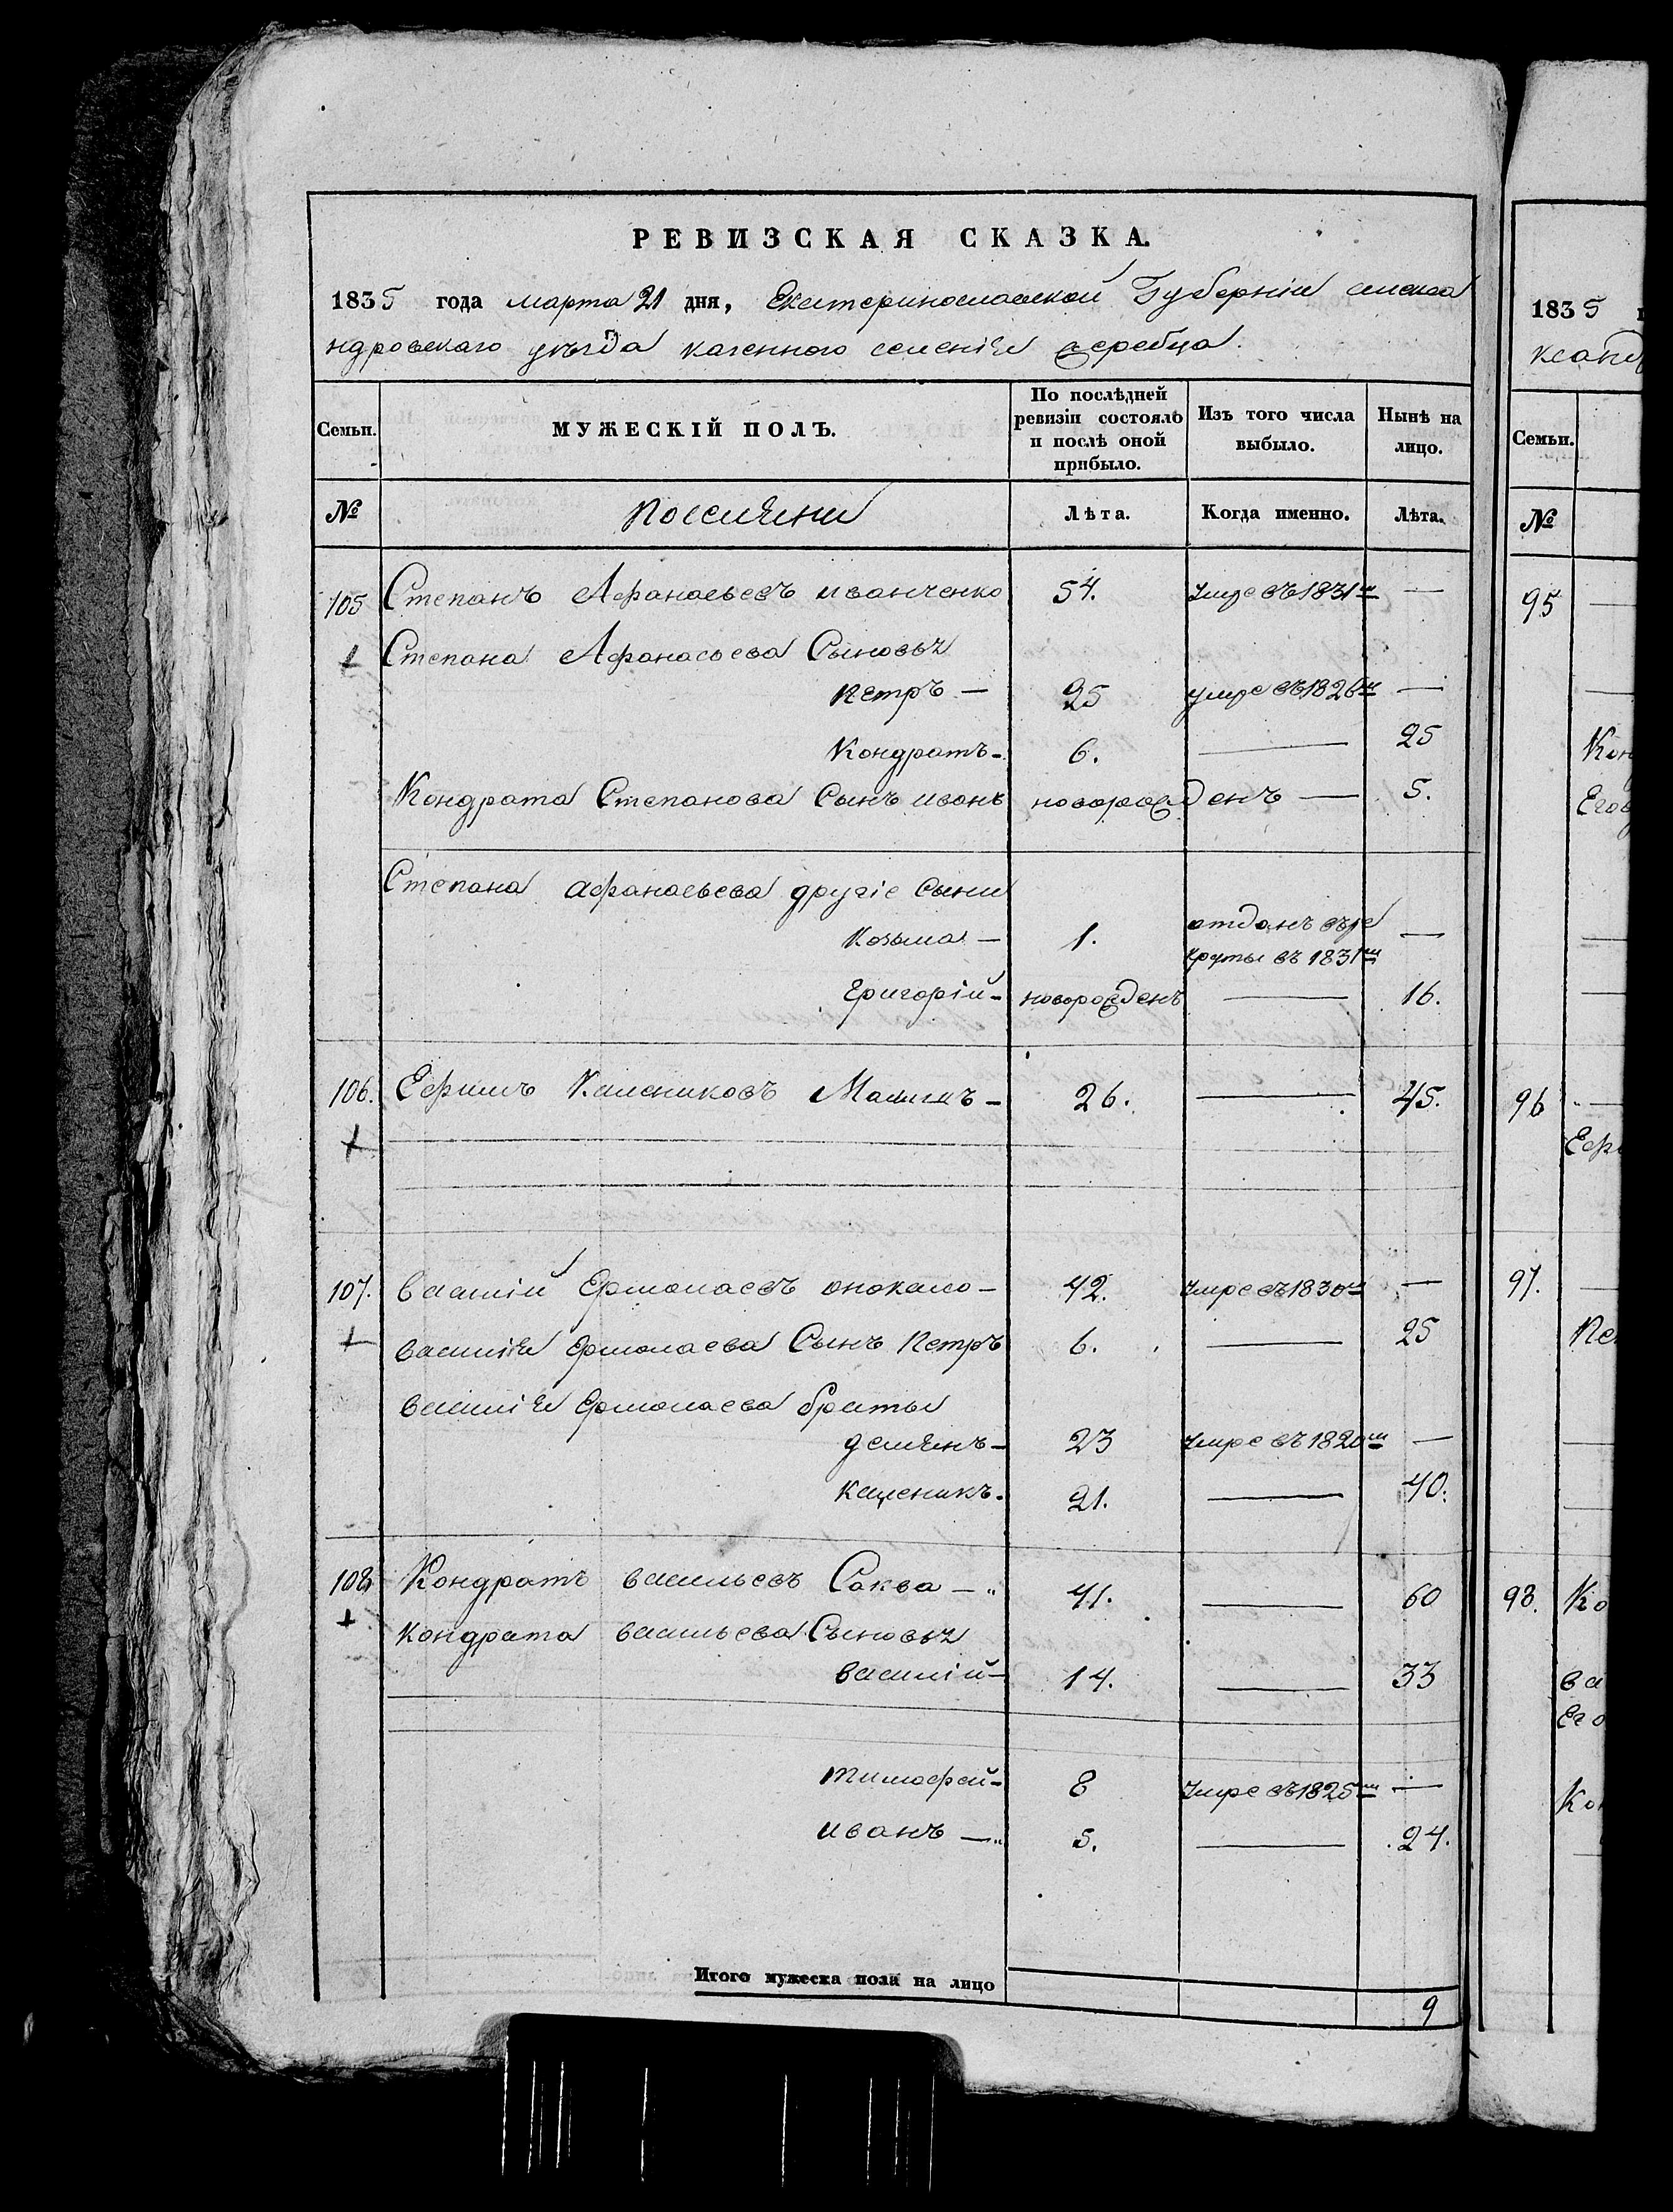 РЕВИЗСКАЯ СКАЗКА.
1835 года марта 21 дня, Екатеринославской Губерніи алекса
ндровскаго уѣзда казенного селенія жеребца.
Семьи.
МУЖЕСКІЙ ПОЛЪ.
По послѣдней ревизіи состояло и послѣ оной прибыло.
Изъ того числа выбыло.
Нынѣ на лицо.
№
поселяни
Лѣта.
Когда именно.
Лѣта.
105 Степанъ Афанасьевъ иванченко 54. умре въ 1831м —
Степана Афанасьева Сыновья
петръ — 25 умре въ 1826м —
Кондратъ - 6. — 25
Кондрата Степанова Сынъ иванъ новорожденъ — 5.
Степана афанасьева другіе Сыни
Козьма — 1. отданъ въ ре —
круты въ 1831м
григорій - новорожденъ — 16.
106. Ефимъ 26. — 45.
107. василій Ермолаевъ — 42. умре въ 1830м —
василія Ермолаева Сынъ петръ 6. — 25
василія Ермолаева братья
демянъ - 23 умре въ 1820м —
21. — 40.
108. Кондратъ васильевъ Саква — 41. — 60
кондрата васильева Сыновья
василій - 14. — 33
тимофей - 8 умре въ 1825м —
иванъ — 5. — 24.
Итого мужеска пола на лицо 9
1835
ксанд
Семьи.
№
95
Кон
Его
96
Ефи
97.
Пе
98. Ко
ва
Его
Ко